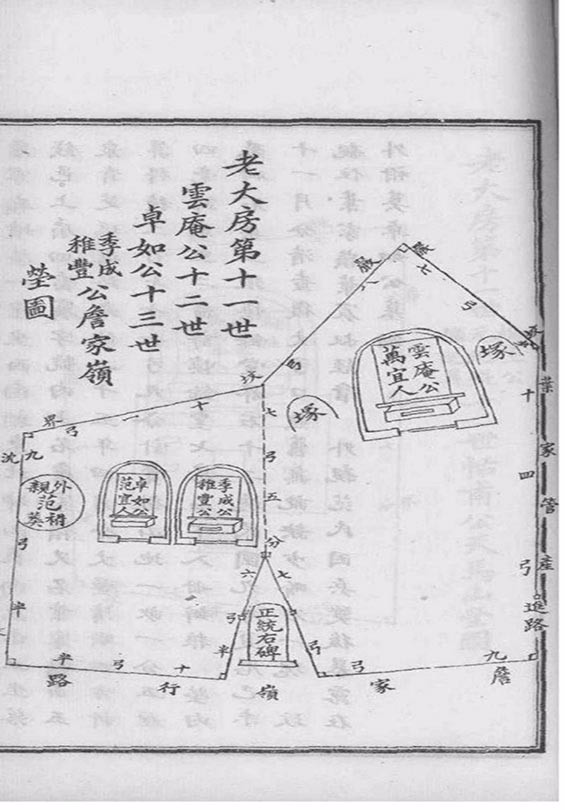 老大房第十一世
雲庵公十二世
卓如公十三世
季成
稚豐公詹家嶺
塋圖
雲庵公
萬宜人
塚
塚
季成公
稚豐公
卓如公
范宜人
外
親范
墓
正統右碑
葉家管產
進路
十四弓
七弓
八
十一弓
界
沈
九弓
七弓五分
六弓半
七弓
詹家嶺行路
九弓
十弓半